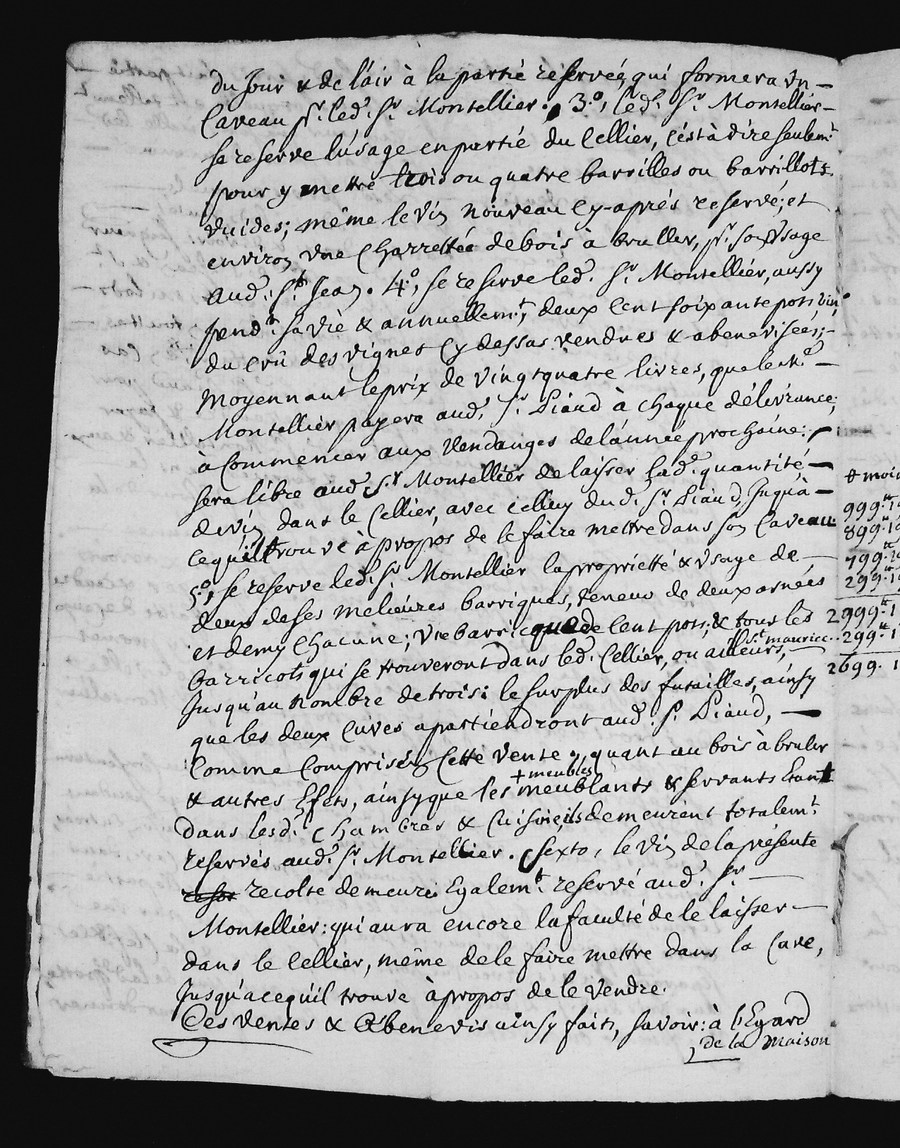 du Jour & de l'air à la partie reservée, qui formera un -
Caveau pr. led. sr. Montellier. 3.o, led. sr. Montellier -
se reserve l'usage en partie du Cellier, c'est à dire seulemt.
pour y mettre trois ou quatre barrilles ou barrillots
vuides; même le vin nouveau Cy-aprés reservé; et
environ une Charrettée de bois à bruller, pr. son usage
aud. St. Jean. 4.o, se reserve led. sr. Montellier, aussy
pendt. sa vie & annuellemt. deux cent soixante pots vin,
du crû des vignes Cy dessus vendues & abenevisées; -
Moyennant le prix de vingt quatre livres, que led. sr. -
Montellier payera aud. sr. Piaud à chaque délivrance;
à Commencer aux vendanges de l'année prochaine: -
sera libre aud. sr. Montellier de laisser lad. quantité -
de vin dans le Cellier, avec celluy dud. sr. Piaud, Jusqu'à -
ce qu'il trouve à propos de le faire mettre dans son Caveau
5.o, se reserve led. sr. Montellier la propriétté & usage de -
deux de ses melieures barriques, teneur de deux asnées
et demy Chacune; une barrique de cent pots; & tous les
barricots qui se trouveront dans led. Cellier, ou ailleurs, -
St. maurice
Jusqu'au nombre de trois: le surplus des futailles, ainsy
que les deux Cuves apartiendront aud. sr. Piaud, -
Comme Comprises en Cette vente, quant au bois à bruler
& autres Efets, ainsy que les meublants & servants Etant
+ meubles
dans lesd. Chambres & Cuisine, ils demeurent totalemt.
reservés aud. sr. Montellier. Sexto, le vin de la présente
recolte demeure Egalemt. reservé aud. sr. -
Montellier: qui aura encore la faculté de le laisser -
dans le Cellier, même de le faire mettre dans la Cave,
Jusqu'à ce qu'il trouve à propos de le vendre.
Ces ventes & Abenevis ainsy faits, savoir: à l'Egard
de la Maison
& moin
999.tt 1
899.tt 1
799.tt 1
299.tt 1
2999.tt 1
299.tt 1
2699. 1